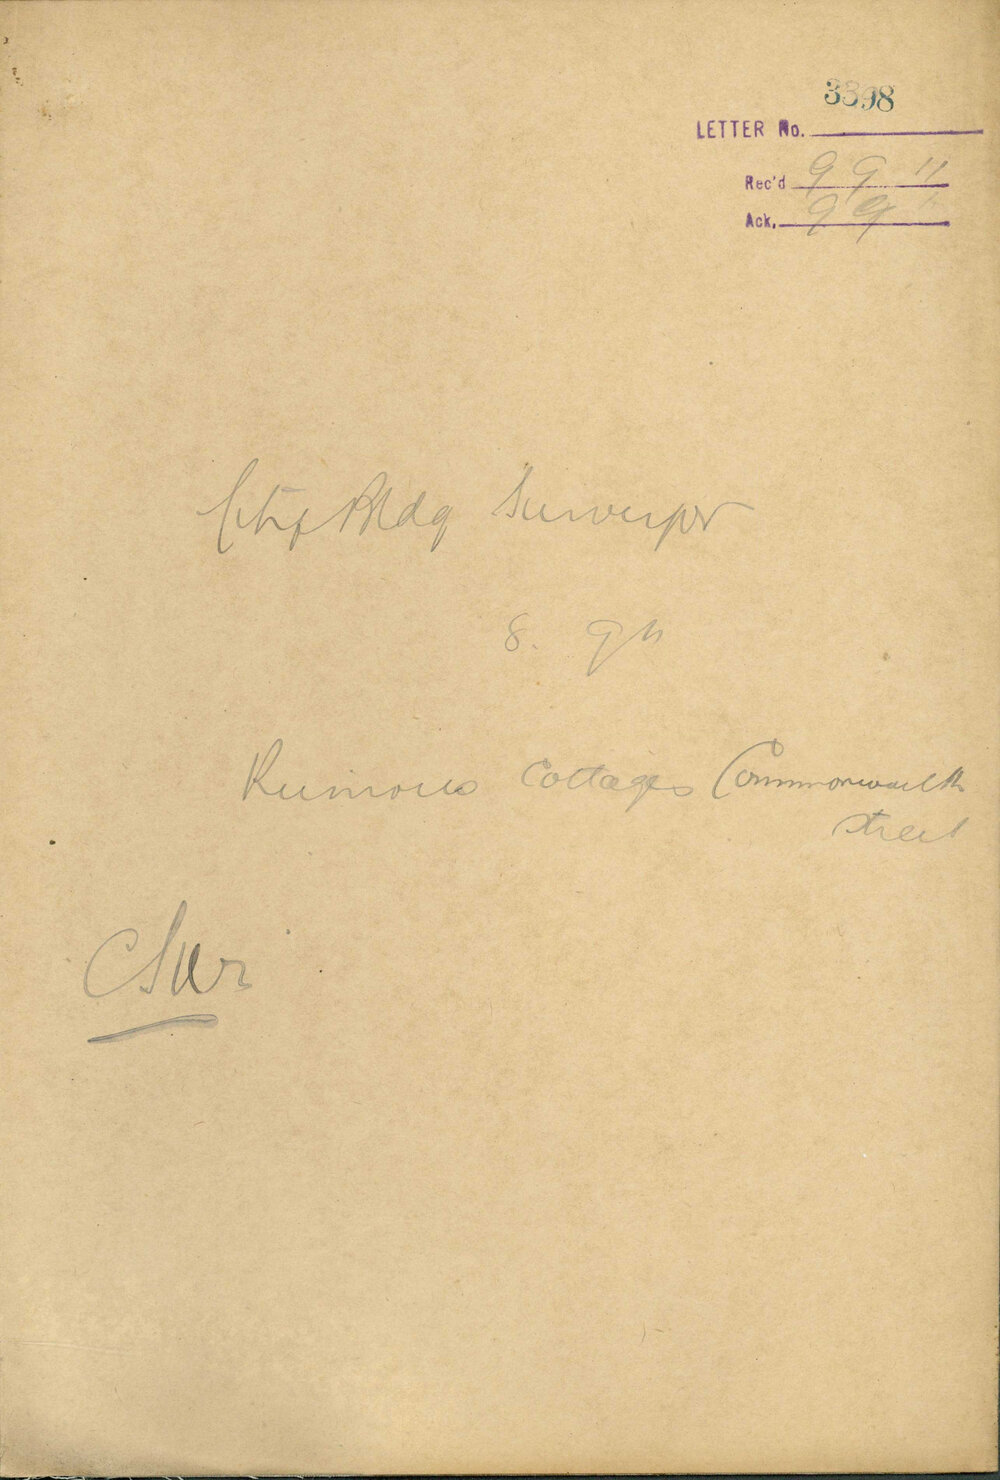 3398
LETTER No.
Rec'd 9 9 11
Ack. 9 9 11
City Bldg Surveyor
8. 9 11
Ruinous Cottages Commonwealth
Street